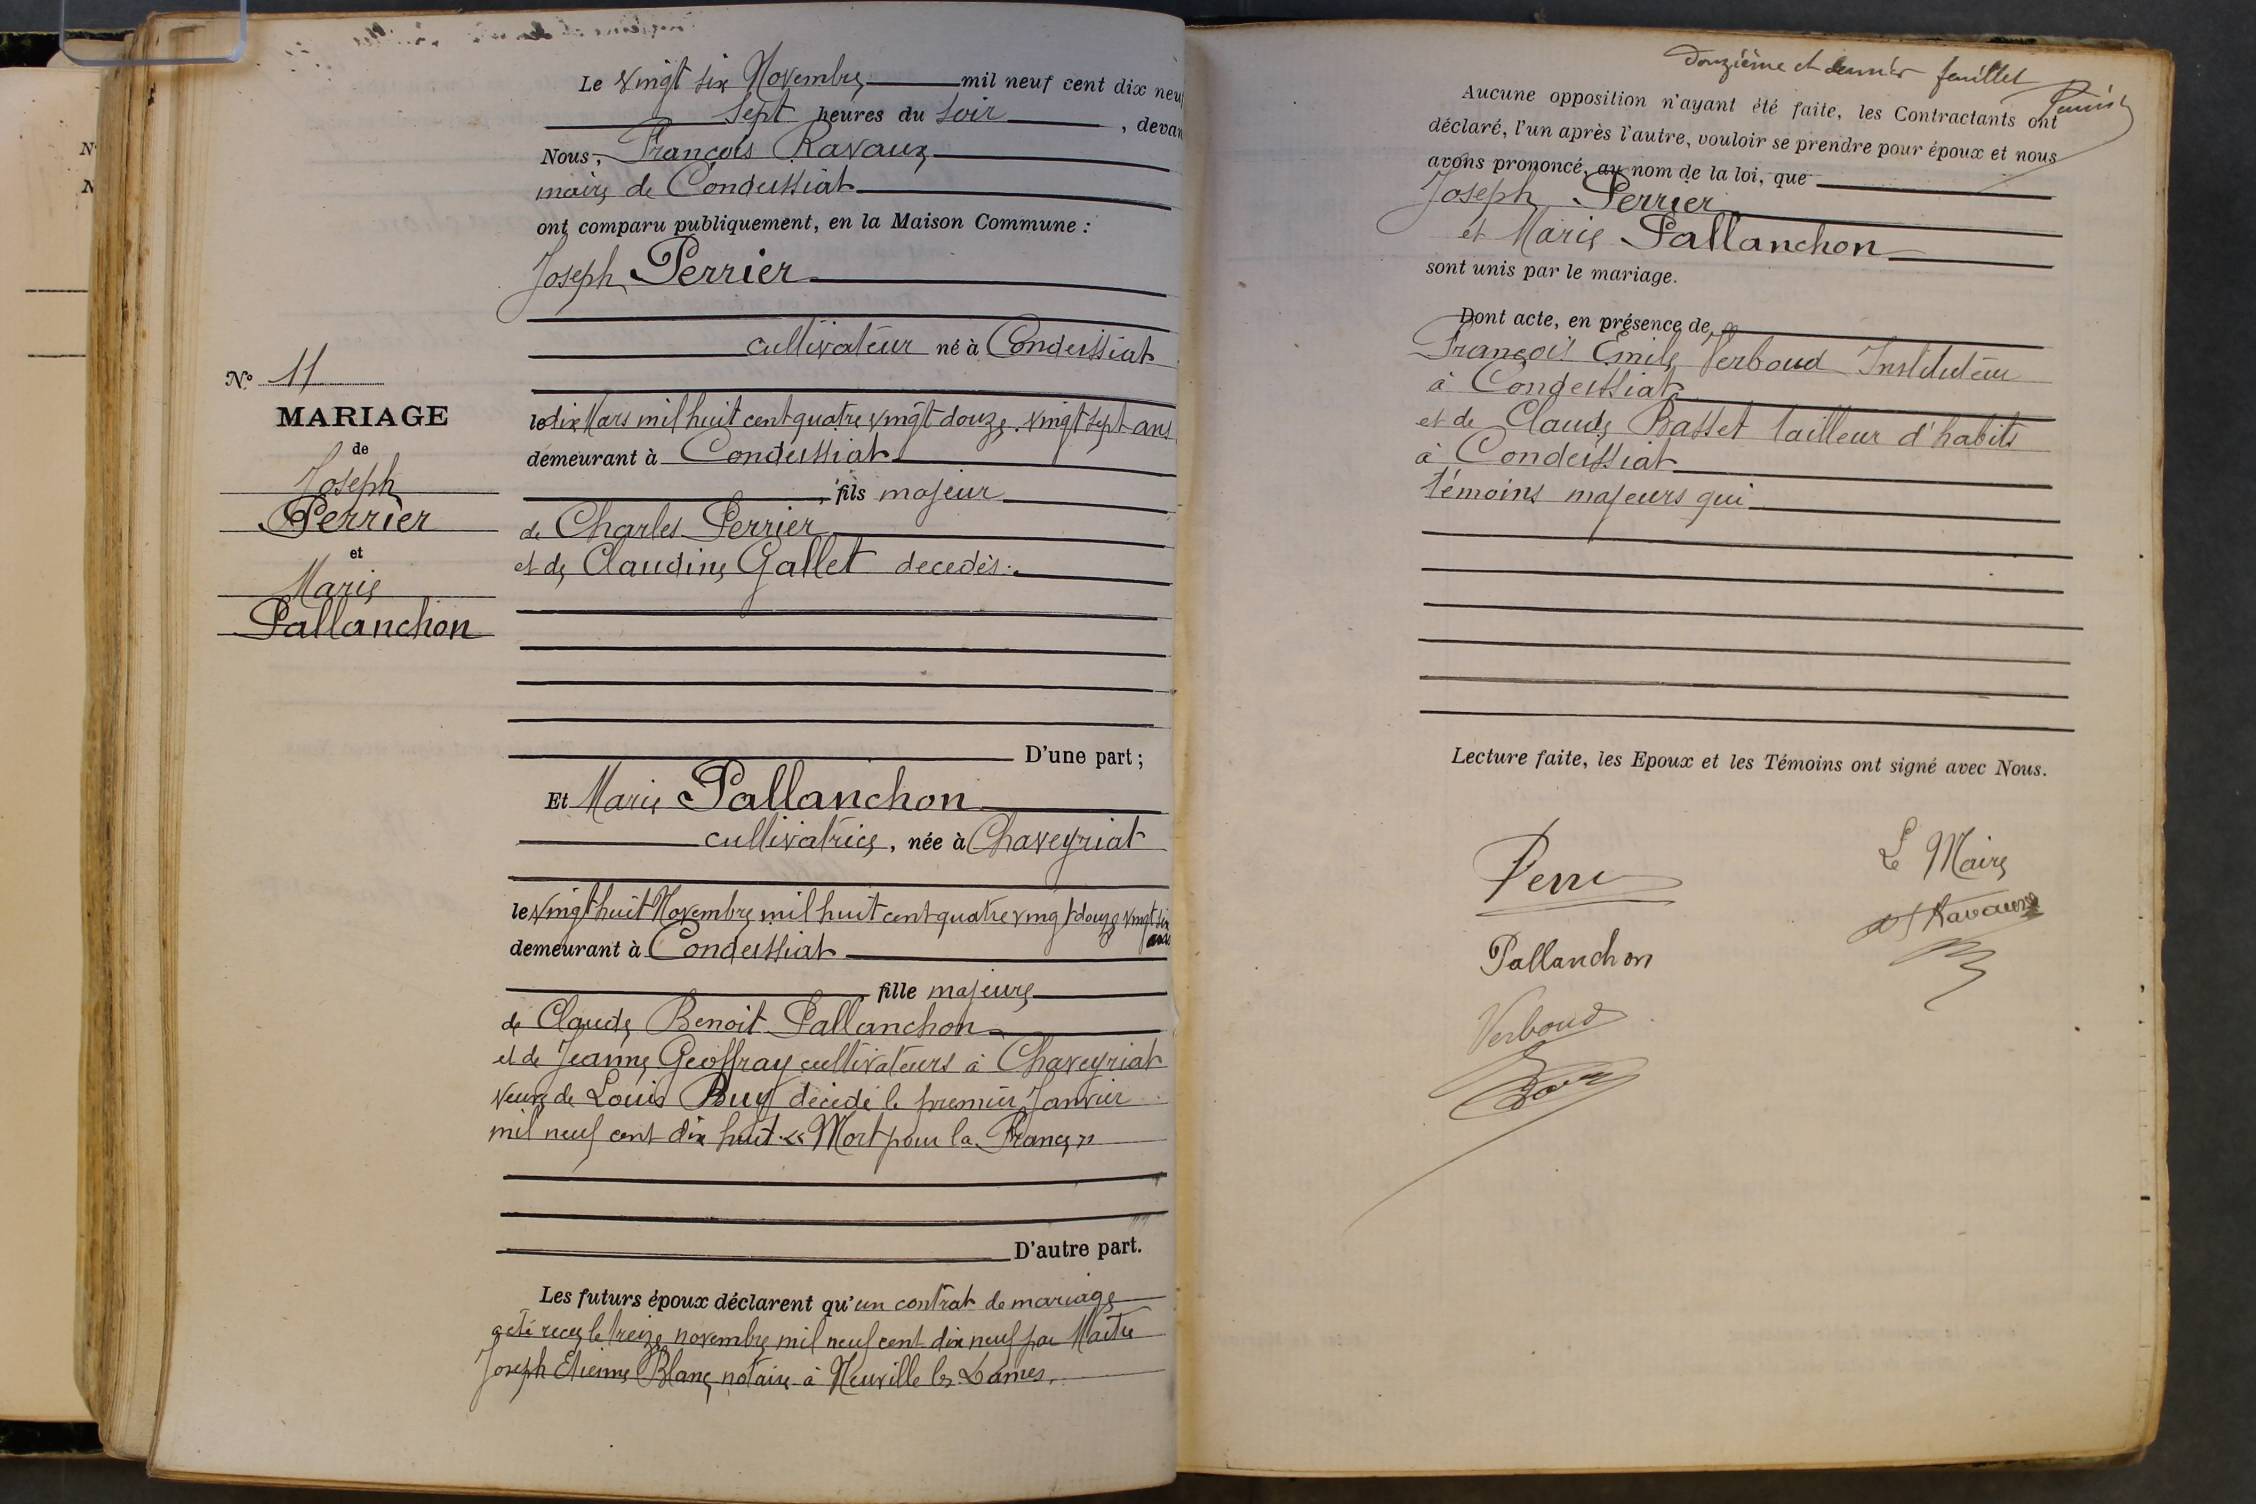 Le vingt six Novembre mil neuf cent dix neuf
sept heures du soir, devan
Nous, François Ravaux
maire de Condeissiat
ont comparu publiquement, en la Maison Commune :
Joseph Perrier
cultivateur né à Condeissiat
N° 11
MARIAGE
de
Joseph
Perrier
et
Marie
Pallanchon
le dix Mars mil huit cent quatre vingt douze. vingt sept ans
demeurant à Condeissiat
, fils majeur
de Charles Perrier
et de Claudine Gallet decedès.
D'une part ;
Et Marie Pallanchon
cultivatrice, née à Chaveyriat
le vingt huit Novembre mil huit cent quatre vingt douze vingt six
ans
demeurant à Condeissiat
fille majeure
de Claude Benoit Pallanchon
et de Jeanne Geoffray cultivateurs à Chaveyriat
veuve de Louis Buy décédé le premier Janvier
mil neuf cent dix huit « Mort pour la France »
D'autre part.
Les futurs époux déclarent qu'un contrat de mariage
a été reçu le treize novembre mil neuf cent dix neuf par Maître
Joseph Etienne Blanc, notaire à Neuville les Dames.
Douzième et dernier feuillet
Aucune opposition n'ayant été faite, les Contractants ont
déclaré, l'un après l'autre, vouloir se prendre pour époux et nous
avons prononcé, au nom de la loi, que
Joseph Perrier
et Marie Pallanchon
sont unis par le mariage.
Dont acte, en présence de
François Emile Verboud Instituteur
à Condeissiat
et de Claude Basset tailleur d'habits
à Condeissiat
témoins majeurs qui
Lecture faite, les Epoux et les Témoins ont signé avec Nous.
Le Maire
Ravaux
Pallanchon
Verboud